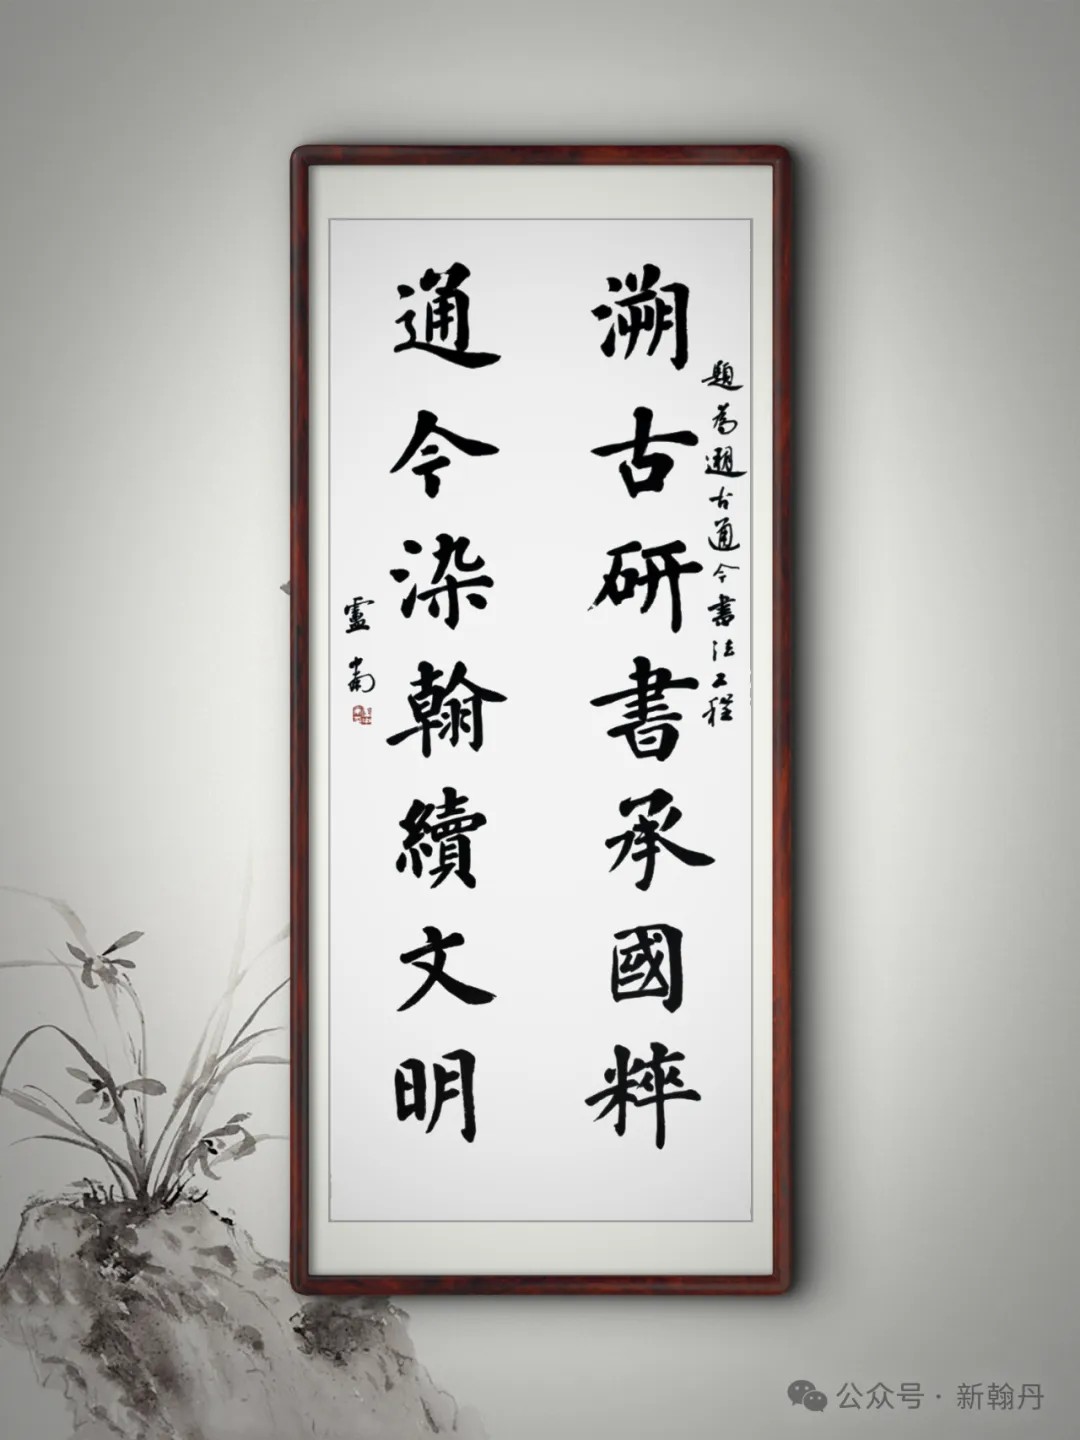 題為遡古通今書法工程
溯古研書承國粹
通今染翰續文明
盧中南
公众号 · 新翰丹